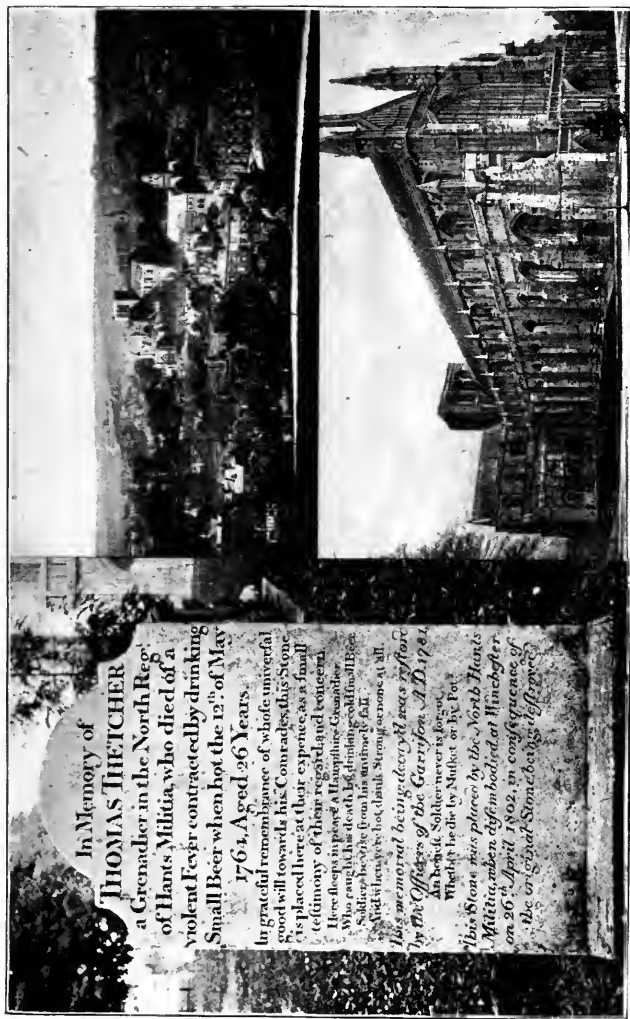 In Memory of
THOMAS THETCHER
a Grenadier in the North Regt.
of Hants Militia, who died of a
violent Fever contracted by drinking
Small Beer when hot the 12th. of May
1764, Aged 26 Years.
In grateful remembrance of whose univerſal
good will towards his Comrades, this Stone
is placed here at their expence, as a ſmall
teſtimony of their regard and concern.
Here ſleeps in peace a Hampſhire Grenadier,
Who caught his death by drinking cold ſmall Beer,
Soldiers be wiſe from his untimely fall
And when ye're hot drink Strong or none at all.
This memorial being decay'd was reſtor'd
by the Officers of the Garriſon A.D. 1781.
An honeſt Soldier never is forgot
Whether he die by Muſket or by Pot.
This Stone was placed by the North Hants
Militia, when diſembodied at Wincheſter
on 26th April 1802, in conſequence of
the original Stone being deſtroyed.